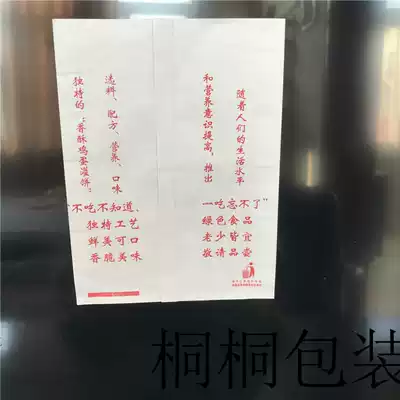 随着人们的生活水平
和营养意识提高，推出
选料、配方、营养、口味
独特的“香酥鸡蛋灌饼”
“不吃不知道、
一吃忘不了”
独特工艺
绿色食品
鲜美可口
老少皆宜
香脆美味
敬请品尝
桐桐包装